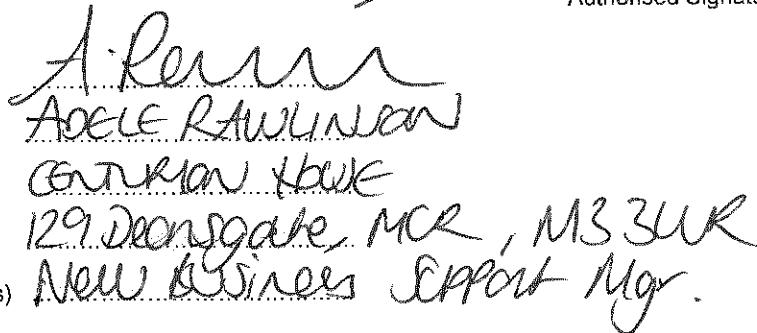 Authorised Signat
A. R
ADELE RAWLINSON
CENTURION HOUSE
129 Deansgate, MCR, M3 3WR
s) New Business Support Mgr.